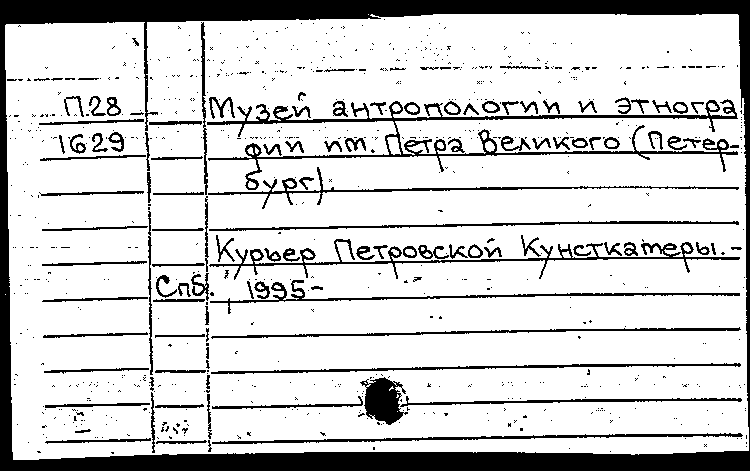 П.28 Музей антропологии и этногра
1629 фии им. Петра Великого (Петер-
бург).
Курьер Петровской Кунсткамеры.-
Спб., 1995-